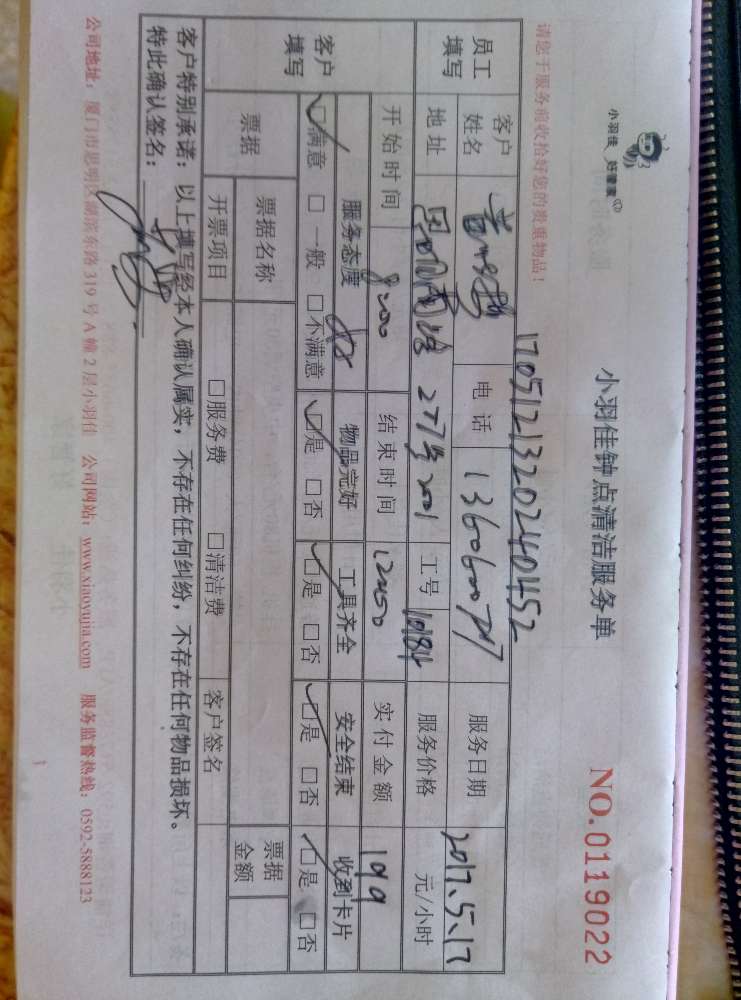 小羽佳 好管家
小羽佳钟点清洁服务单
NO.0119022
请您于服务前收拾好您的贵重物品！
1705121320240452
员工填写 客户姓名 电话 服务日期 2017.5.17
地址 277号2001 工号 10184 服务价格 元/小时
开始时间 8:00 结束时间 12:00 实付金额 199
客户填写 服务态度 物品完好 工具齐全 安全结束 收到卡片
☑满意 □一般 □不满意 ☑是 □否 ☑是 □否 ☑是 □否 ☑是 □否
票据 票据名称 票据金额
开票项目 □服务费 □清洁费 客户签名
客户特别承诺：以上填写经本人确认属实，不存在任何纠纷，不存在任何物品损坏。
特此确认签名：
公司地址：厦门市思明区湖滨东路319号A幢2层小羽佳 公司网站：www.xiaoyujia.com 服务监督热线：0592-5888123
1